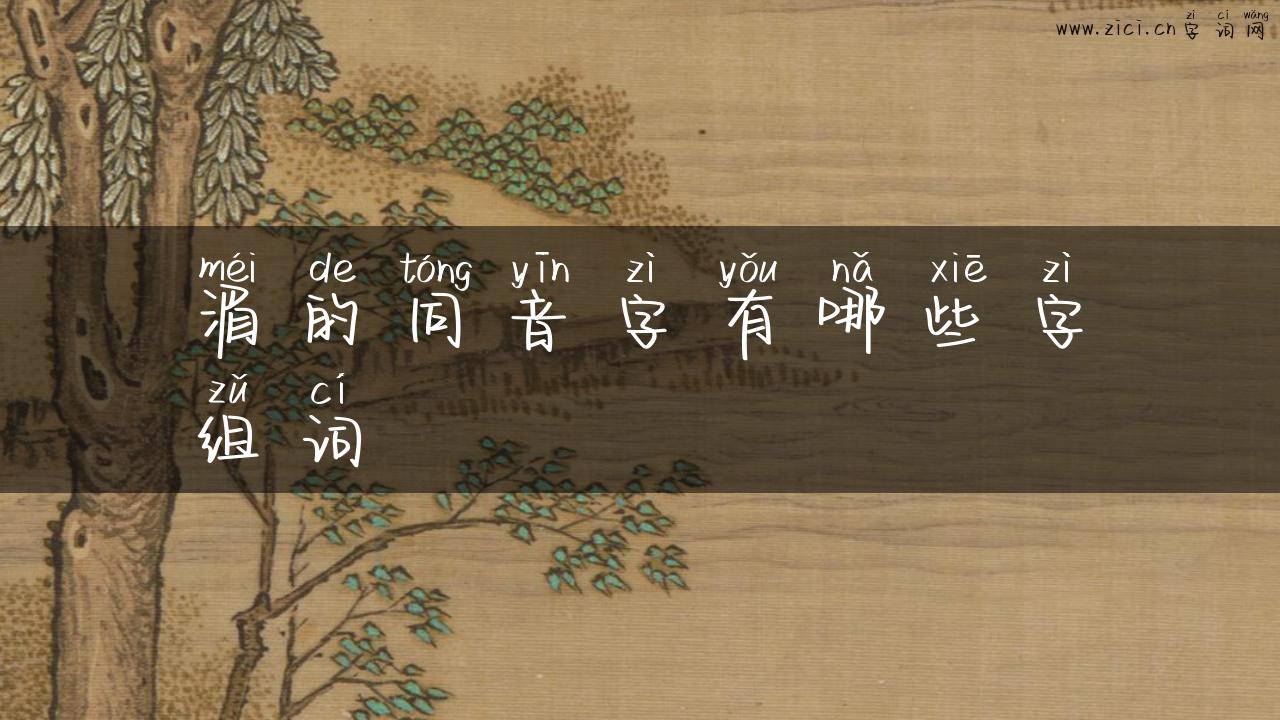 zì cí wǎng
www.zici.cn 字词网
méi de tóng yīn zì yǒu nǎ xiē zì
湄的同音字有哪些字
zǔ cí
组词